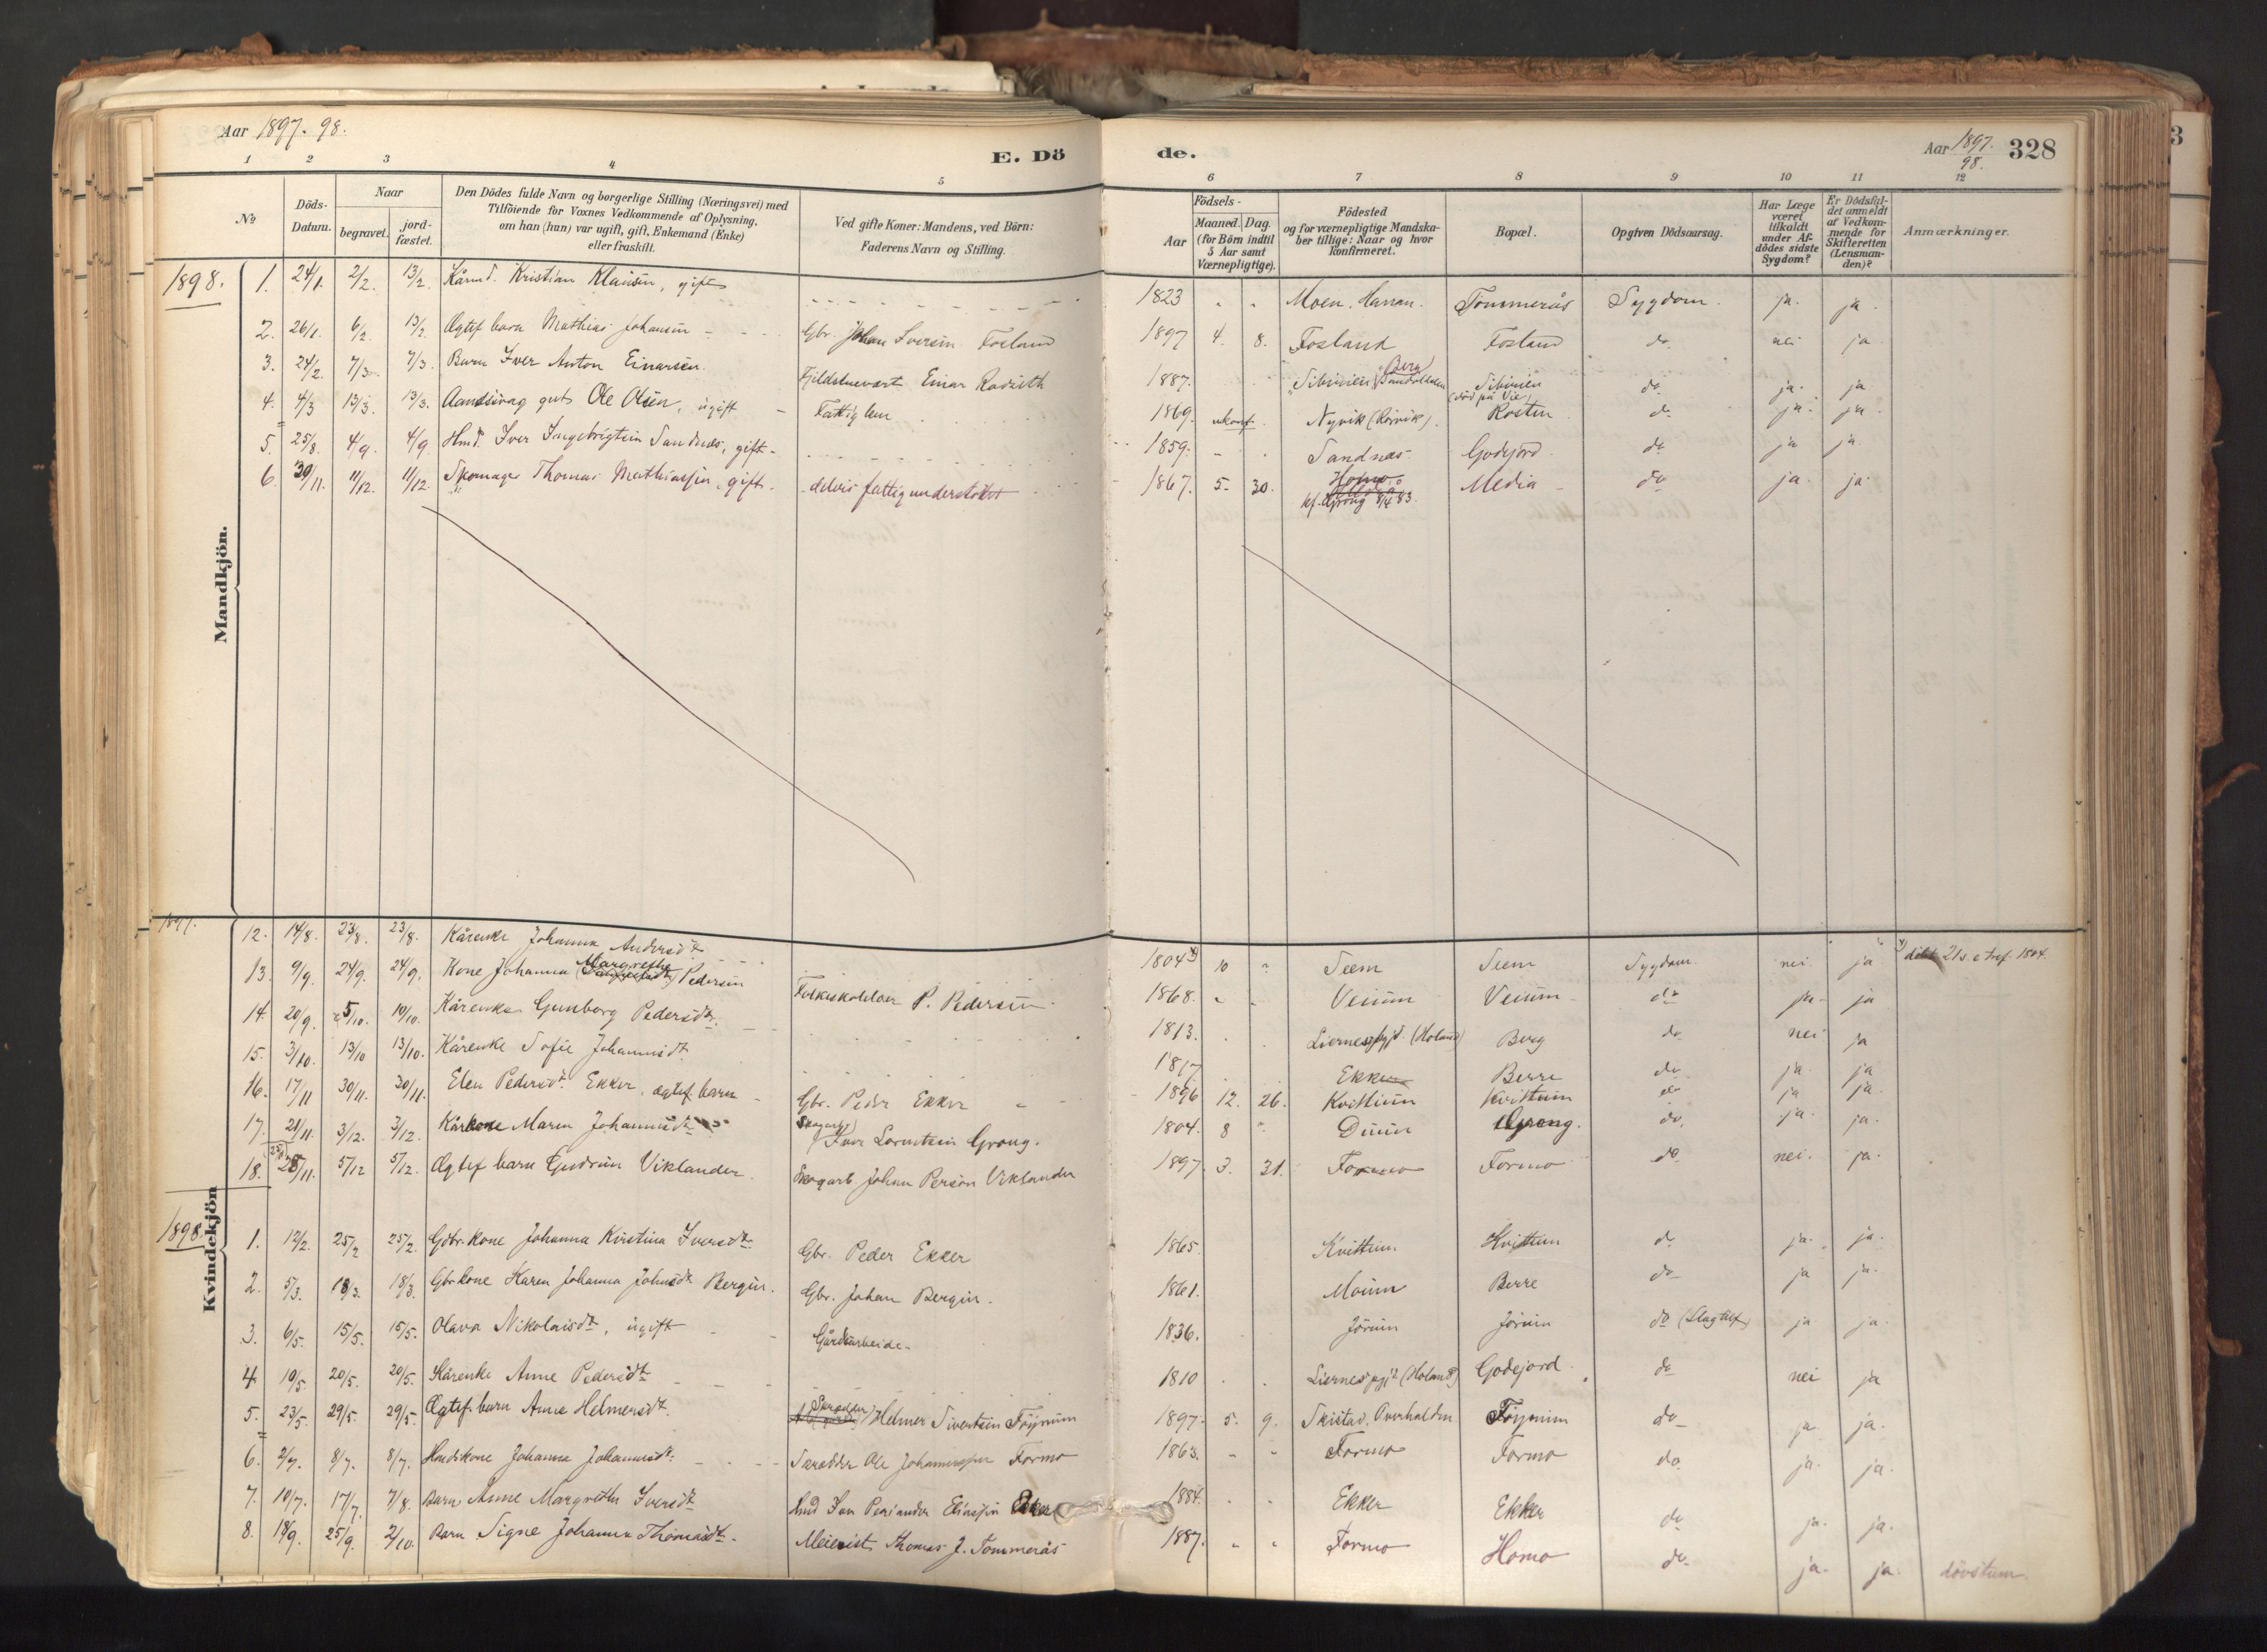 Aar 1897. 98.
E. Dö de.
Aar 1897. 98. 328
1 2 3 4 5 6 7 8 9 10 11 12
№
Döds-Datum.
Naar
begravet.
jord-fæstet.
Den Dödes fulde Navn og borgerlige Stilling (Næringsvei) med
Tilföiende for Voxnes Vedkommende af Oplysning,
om han (hun) var ugift, gift, Enkemand (Enke)
eller fraskilt.
Ved gifte Koner: Mandens, ved Börn:
Faderens Navn og Stilling.
Födsels-
Aar
Maaned. Dag.
(for Börn indtil
5 Aar samt
Værnepligtige).
Födested
og for værnepligtige Mandska-
ber tillige: Naar og hvor
konfirmeret.
Bopæl.
Opgiven Dödsaarsag.
Har Læge
været
tilkaldt
under Af-
dödes sidste
Sygdom?
Er Dödsfal-
det anmeldt
af Vedkom-
mende for
Skifteretten
(Lensman-
den)?
Anmærkninger.
Mandkjön.
1898.
1. 24/1. 2/2. 13/2. Kårmd. Kristian Klausen, gift 1823 Moen. Harran. Tømmerås Sygdom. ja. ja.
2. 26/1. 6/2. 13/2. Ægtef. barn Mathias Johansen Gbr. Johan Iversen Fosland 1897 4. 8. Fosland Fosland do. nei ja.
3. 24/2. 7/3. 7/3. Barn Iver Anton Einarsen. Fjeldstuevært Einar 1887. Berg Sibirien (død på Vie) do ja. ja
4. 4/3 13/3. 13/3. Aandssvag gut Ole Olsen, ugift Fattiglem 1869. ukonf. Nyvik (Rørvik). Rosten do. ja. ja.
5. 25/8. 4/9. 4/9. Hmd. Iver Ingebrigtsen Sandnæs, gift. 1859. Sandnæs. Godejord do ja ja.
6. 30/11. 11/12. 11/12. Skomager Thomas Mathiassen, gift. delvis fattigunderstøttet 1867. 5. 30. Homo kf. Grong 8/4 83. Media do ja. ja.
Kvindekjön
1897.
12. 14/8. 23/8. 23/8. Kårenke Johanna Andersdt. 1804 10 Seem Seem Sygdom nei ja døbt 21 s. e. tref. 1804.
13. 9/9. 24/9. 24/9. Kone Johanna Margrethe Pedersen Folkeskolelærer P. Pedersen 1868. Veium Veium do ja. ja
14. 20/9. 5/10. 10/10. Kårenke Gunborg Pedersdt. 1813. Liernes pgjd. (Holand) Berg do nei ja
15. 3/10. 13/10 13/10. Kårenke Sofie Johannisdt. 1817 Ekker Berre do ja. ja
16. 17/11 30/11. 30/11. Elen Pedersdt. Ekker, ægtef. barn Gbr. Peder Ekker 1896 12. 26. Kvistum Kvistum do ja ja.
17. 21/11. 3/12. 3/12. Kårkone Maren Johannisdt. Grong. 1804. 8 Duun Grong. do. ja. ja.
18. 25/11. 5/12 5/12. Ægtef. barn Gudrun Viklander. Skogarb. Johan Person Viklander 1897 3. 31. Formo Formo do nei. ja.
1898.
1. 12/2. 25/2 25/2. Gdbr. kone Johanna Kirstina Iversdt. Gbr. Peder Ekker 1865. Kvistum Kvistum do ja. ja.
2. 5/3. 18/3. 18/3. Gbr. kone Karen Johanna Johnsdt. Bergin. Gbr. Johan Bergin. 1861. Moum Berre do ja ja.
3. 6/5. 15/5. 15/5. Olava Nikolaisdt., ugift Gårdsarbeide. 1836. Jørum Jørum do (Slagtilf.) ja ja.
4. 10/5. 20/5. 20/5. Kårenke Anne Pedersdt. 1810 Liernes pgjd (Holand) Godejord. do nei ja
5. 23/5. 29/5. 29/5. Ægtef. barn Anne Helmersdt. Helmer Sivertsen Føynum 1897. 5. 9. Skistad. Overhalden Føynum do ja. ja.
6. 2/7. 8/7. 8/7. Hmdskone Johanna Johannisdt. Ole Johannessen Formo 1863. Formo Formo do ja. ja.
7. 10/7. 17/7. 7/8. Barn Anne Margrethe Iversdt. Hmd Ekker 1884. Ekker Ekker do ja. ja.
8. 18/9. 25/9. 2/10. Barn Signe Johanna Thomasdt. Meierist Thomas J. Tømmerås 1887. Formo Homo do ja. ja. døvstum.